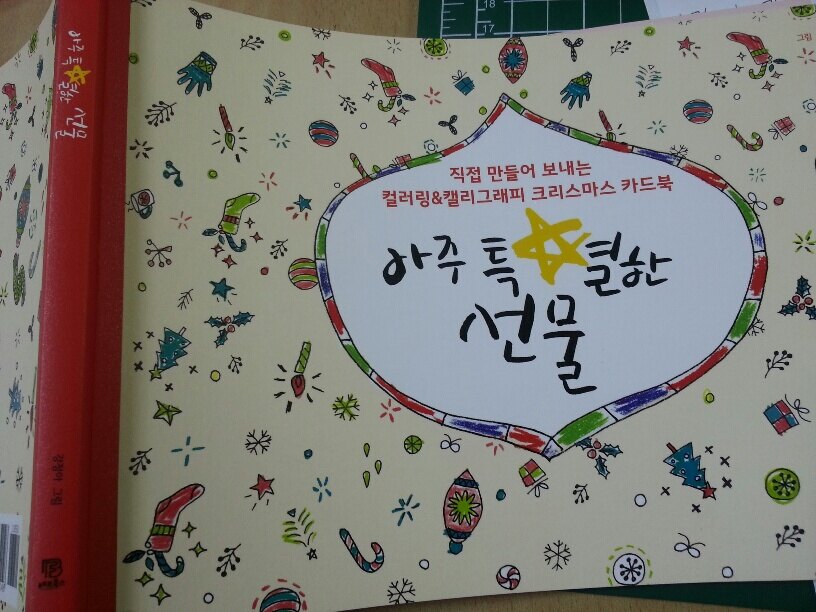 직접 만들어 보내는
컬러링&캘리그래피 크리스마스 카드북
아주 특별한
선물
아주 특별한 선물
그림
18
17